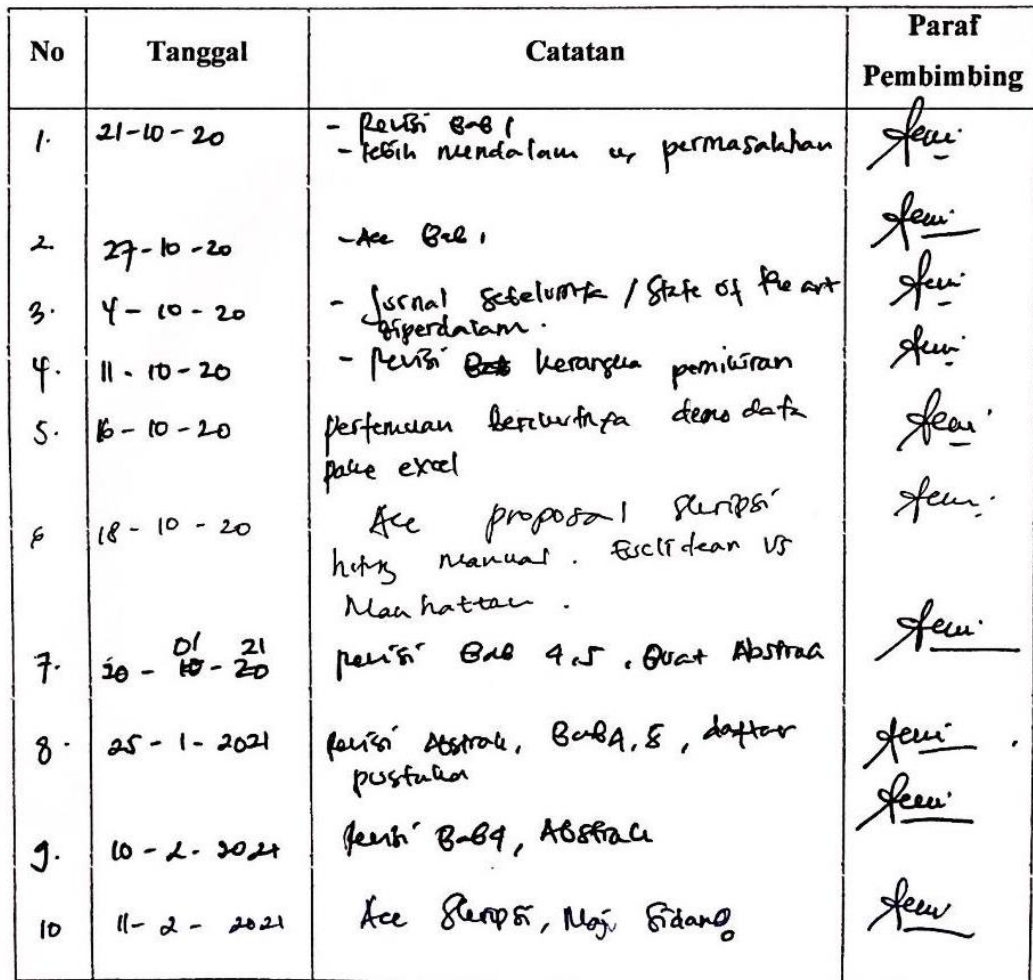 No Tanggal Catatan Paraf Pembimbing
1. 21-10-20 - Revisi Bab 1
- lebih mendalam u, permasalahan
2. 27-10-20 - Acc Bab 1
3. 4-10-20 - Jurnal sebelumnya / State of the art
diperdalam.
4. 11-10-20 - Revisi kerangka pemikiran
5. 16-10-20 pertemuan berikutnya demo data
pake excel
6 18-10-20 Acc proposal skripsi
hitung manual. Euclidean vs
Manhattan.
01 21
7. 20-10-20 revisi Bab 4,5, Buat Abstrak
8. 25-1-2021 revisi Abstrak, Bab 4, 5, daftar
pustaka
9. 10-2-2021 revisi Bab 4, Abstrak
10 11-2-2021 Acc Skripsi, Maju Sidang